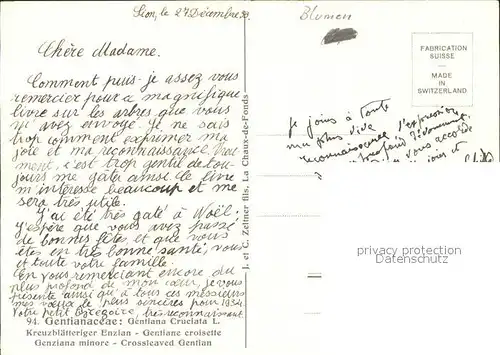 Sion, le 27 Décembre 33.
Chère Madame.
Comment puis-je assez vous
remercier pour ce magnifique
livre sur les arbres que vous
m'avez envoyé. Je ne sais
trop comment exprimer ma
joie et ma reconnaissance. Vrai-
ment, c'est trop gentil de tou-
jours me gâter ainsi. Le livre
m'intéresse beaucoup et me
sera très utile.
J'ai été très gâté à Noël.
J'espère que vous avez passé
de bonnes fêtes et que vous
êtes en très bonne santé, vous
et toute votre famille.
En vous remerciant encore du
plus profond de mon cœur, je vous
présente ainsi qu'à tous ces messieurs
mes vœux le plus sincères pour 1934.
Votre petit Grégoire, très reconnaissant.
94. Gentianaceae: Gentiana Cruciata L.
Kreuzblätteriger Enzian - Gentiane croisette
Genziana minore - Crossleaved Gentian
J. et C. Zeltner fils, La Chaux-de-Fonds
Blumen
FABRICATION
SUISSE
MADE IN
SWITZERLAND
je joins à toute
ma plus vive
reconnaissance l'expression
profond dévouement.
vous accorde
jours et
privacy protection
watermark